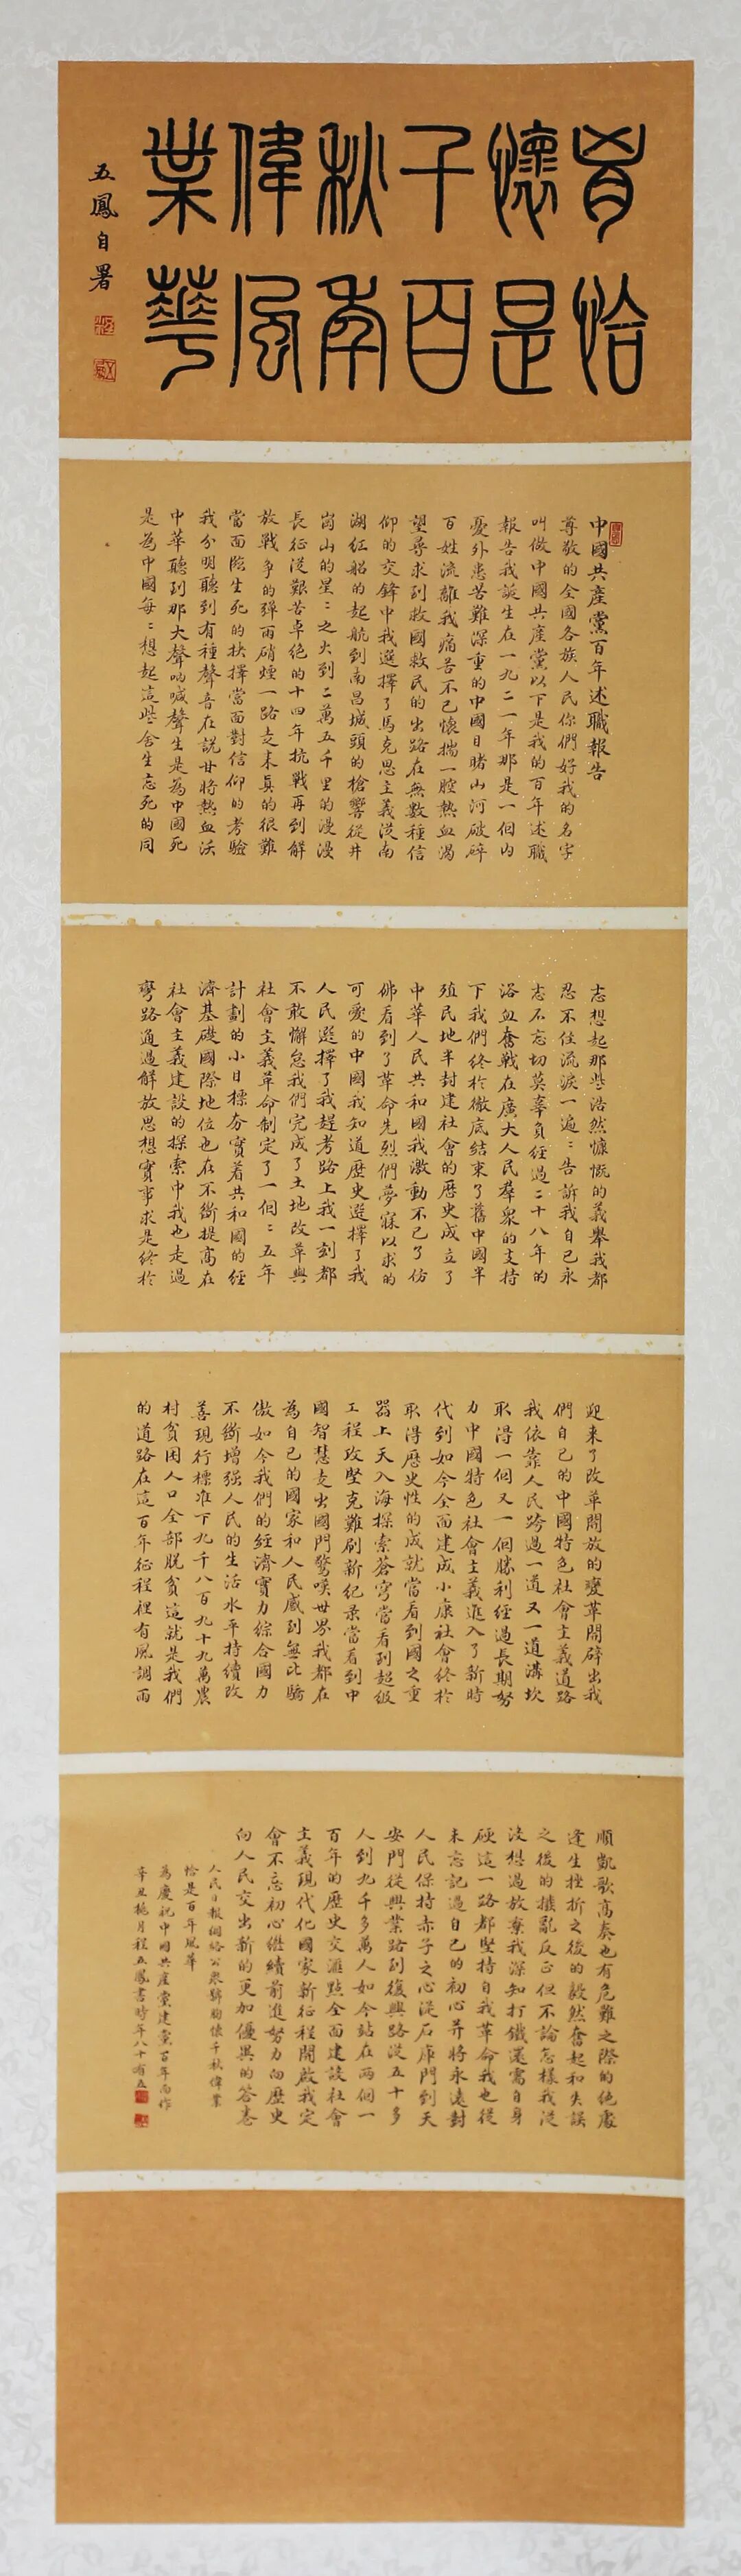 胸懷千秋偉業
恰是百年風華
五鳳自署
中國共產黨百年述職報告
尊敬的全國各族人民你們好我的名字
叫做中國共產黨以下是我的百年述職
報告我誕生在一九二一年那是一個内
憂外患苦難深重的中國目睹山河破碎
百姓流離我痛苦不已懷揣一腔熱血渴
望尋求到救國救民的出路在無數種信
仰的交鋒中我選擇了馬克思主義從南
湖紅船的起航到南昌城頭的槍響從井
岡山的星:之火到二萬五千里的漫漫
長征從艱苦卓絕的十四年抗戰再到解
放戰争的彈雨硝煙一路走来真的很難
當面臨生死的抉擇當面對信仰的考驗
我分明聽到有種聲音在説甘將熱血沃
中華聽到那大聲吶喊聲生是為中國死
是為中國每:想起這些舍生忘死的同
志想起那些浩然慷慨的義舉我都
忍不住流淚一遍:告訴我自己永
志不忘切莫辜負經過二十八年的
浴血奮戰在廣大人民群衆的支持
下我們終於徹底結束了舊中國半
殖民地半封建社會的歷史成立了
中華人民共和國我激動不已了仿
佛看到了革命先烈們夢寐以求的
可愛的中國我知道歷史選擇了我
人民選擇了我趕考路上我一刻都
不敢懈怠我們完成了土地改革與
社會主義革命制定了一個:五年
計劃的小目標夯實着共和國的經
濟基礎國際地位也在不斷提高在
社會主義建設的探索中我也走過
彎路通過解放思想實事求是終於
迎来了改革開放的變革開辟出我
們自己的中國特色社會主義道路
我依靠人民跨過一道又一道溝坎
取得一個又一個勝利經過長期努
力中國特色社會主義進入了新時
代到如今全面建成小康社會終於
取得歷史性的成就當看到國之重
器上天入海探索蒼穹當看到超級
工程攻堅克難刷新紀录當看到中
國智慧走出國門驚嘆世界我都在
為自己的國家和人民感到無比驕
傲如今我們的經濟實力綜合國力
不斷增强人民的生活水平持續改
善現行標准下九千八百九十九萬農
村貧困人口全部脱貧這就是我們
的道路在這百年征程裡有風調雨
順凱歌高奏也有危難之際的絶處
逢生挫折之後的毅然奮起和失誤
之後的撥亂反正但不論怎樣我從
没想過放棄我深知打鐵還需自身
硬這一路都堅持自我革命我也從
未忘記過自己的初心并將永遠對
人民保持赤子之心從石庫門到天
安門從興業路到復興路從五十多
人到九千多萬人如今站在兩個一
百年的歷史交滙點全面建設社會
主義現代化國家新征程開啟我定
會不忘初心繼續前進努力向歷史
向人民交出新的更加優異的答卷
人民日報網絡公衆號胸懷千秋偉業
恰是百年風華
為慶祝中國共產黨建黨百年而作
辛丑桃月程五鳳書時年八十有五